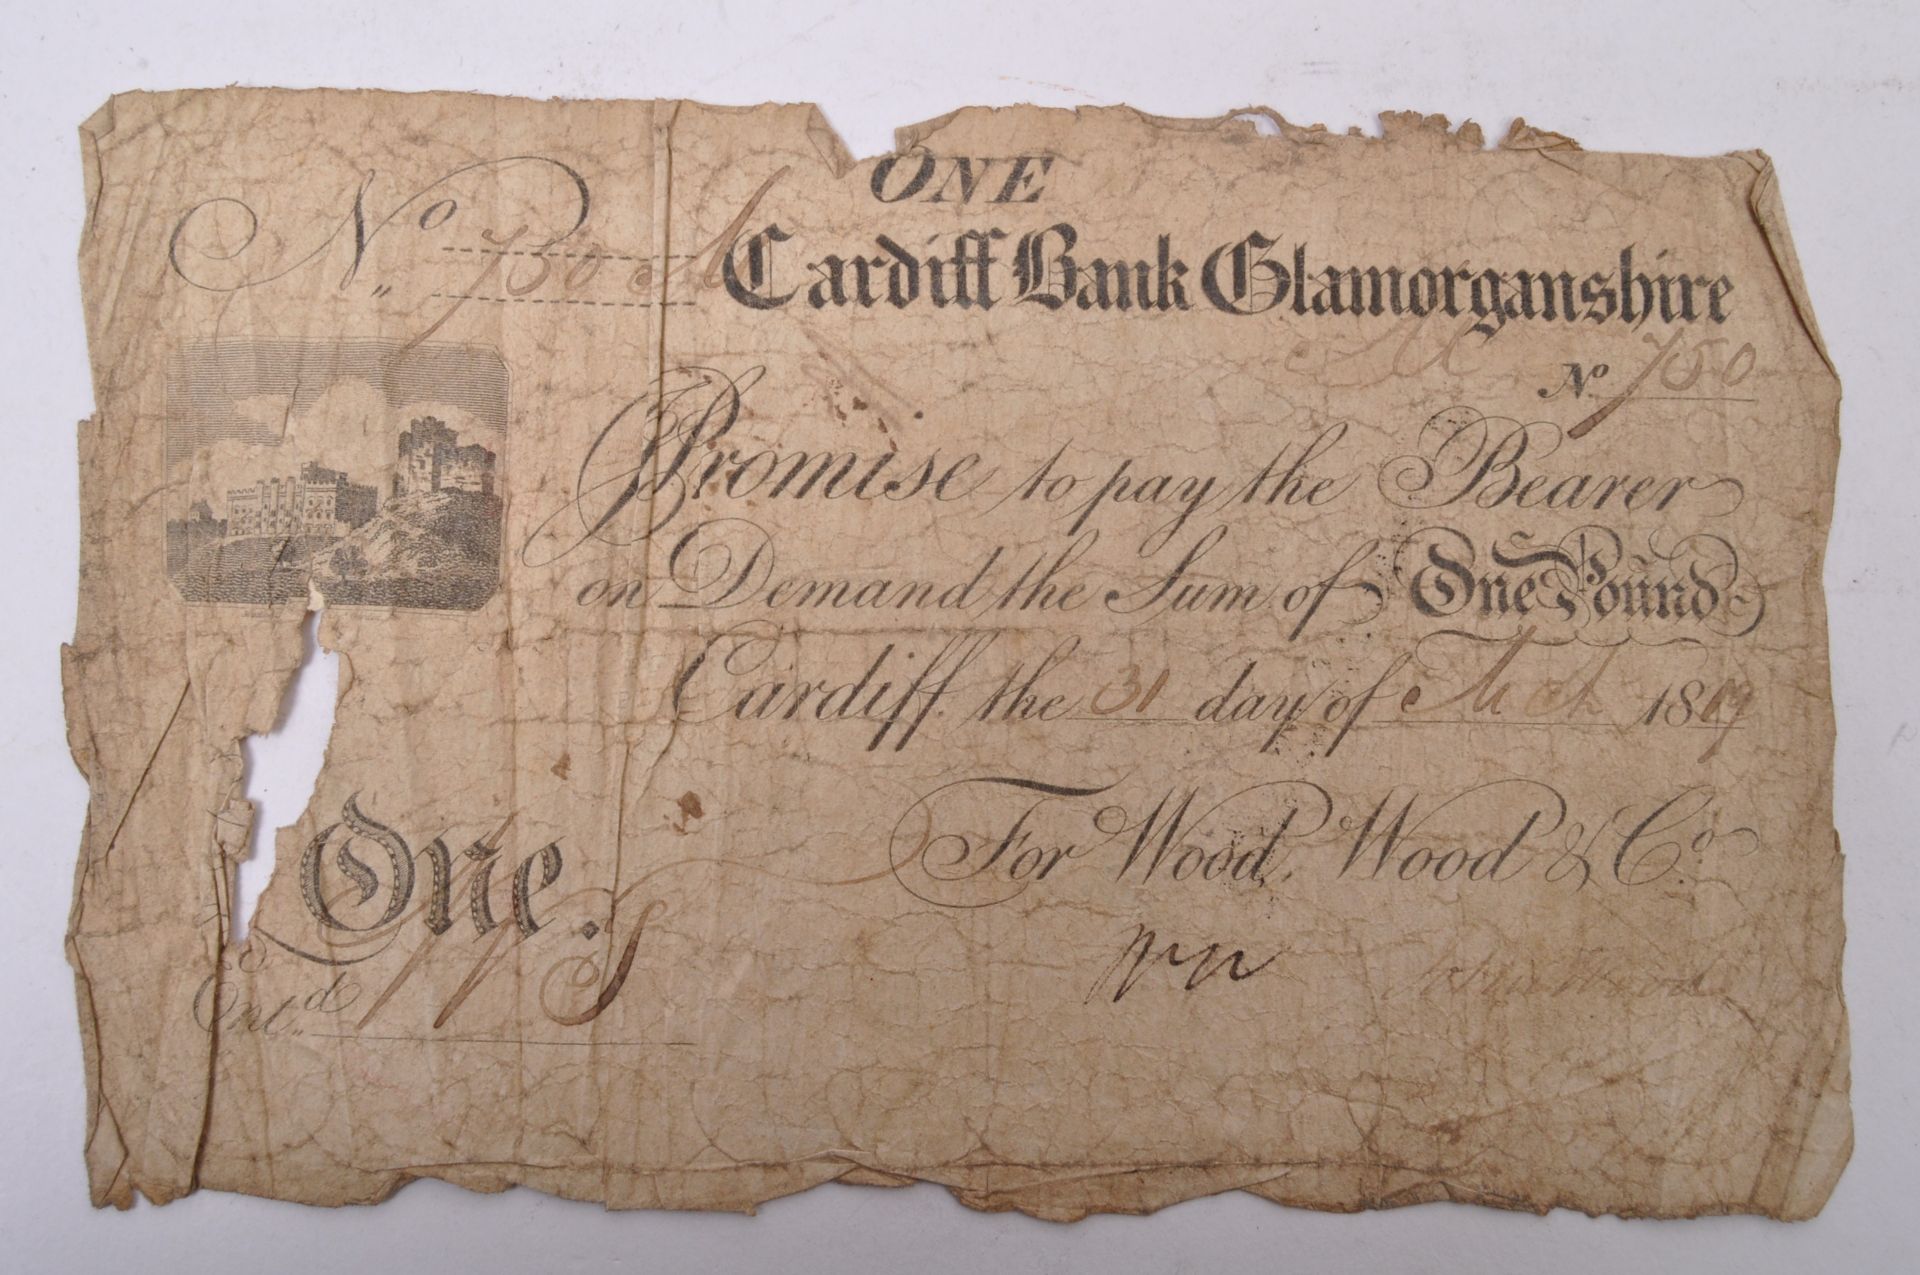 ONE
No 750
Cardiff Bank Glamorganshire
No 750
I Promise to pay the Bearer
on Demand the Sum of One Pound
Cardiff the 31 day of Mch 1819
For Wood, Wood & Co.
One.
John Wood
Ent.d